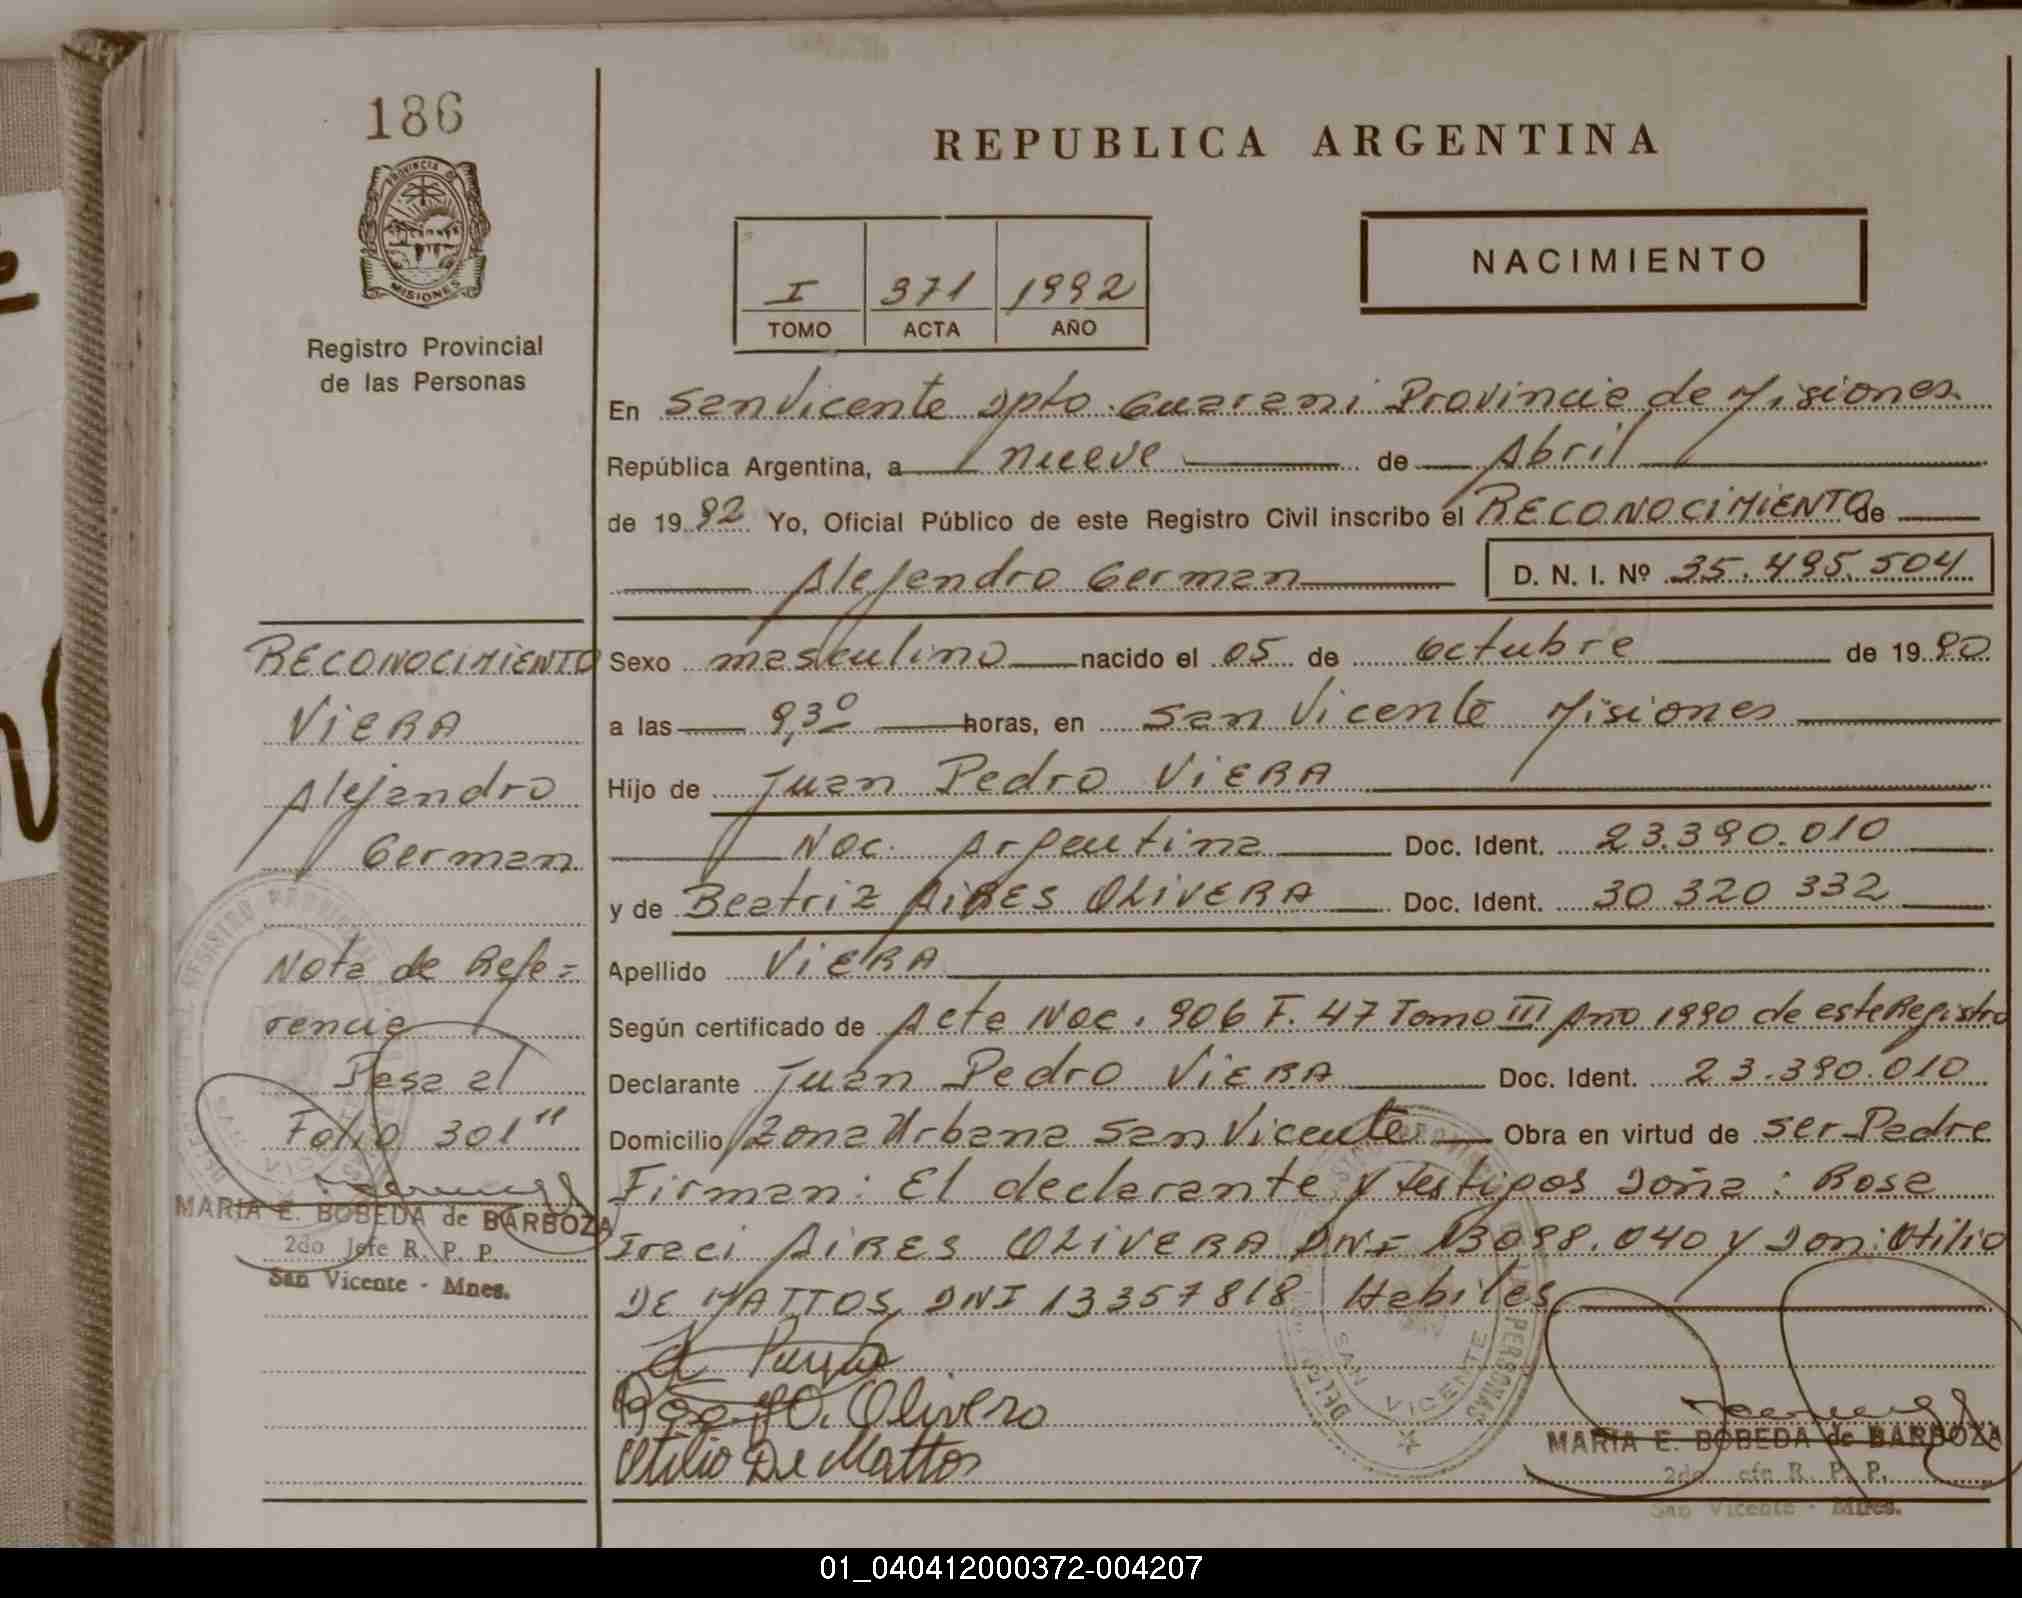 186
PROVINCIA DE
MISIONES
Registro Provincial
de las Personas
REPUBLICA ARGENTINA
I 371 1992
TOMO ACTA AÑO
NACIMIENTO
En San Vicente Dpto. Guarani Provincia de Misiones
República Argentina, a nueve de Abril
de 1992 Yo, Oficial Público de este Registro Civil inscribo el RECONOCIMIENTO de
Alejandro German D. N. I. Nº 35.495.504
Sexo masculino nacido el 05 de octubre de 1990
a las 9,30 horas, en San Vicente Misiones
Hijo de Juan Pedro VIERA
Nac. Argentina Doc. Ident. 23.390.010
y de Beatriz AIRES OLIVERA Doc. Ident. 30 320 332
Apellido VIERA
Según certificado de Acta Nac. 906 F. 47 Tomo III Año 1990 de este Registro
Declarante Juan Pedro VIERA Doc. Ident. 23.390.010
Domicilio Zona Urbana San Vicente Obra en virtud de ser Padre
Firman: El declarante y testigos Doña: Rosa
Iraci AIRES OLIVERA DNI 13098.040 y Don: Otilio
DE MATTOS DNI 13357818 Habiles
Olivero
Otilio De Mattos
SAN VICENTE
MARIA E. BOBEDA de BARBOZA
2do Jefe R. P. P.
San Vicente - Mnes.
RECONOCIMIENTO
VIERA
Alejandro
German
Nota de Refe=
rencia
Pasa al
Folio 301"
MARIA E. BOBEDA de BARBOZA
2do Jefe R. P. P.
San Vicente - Mnes.
01_040412000372-004207